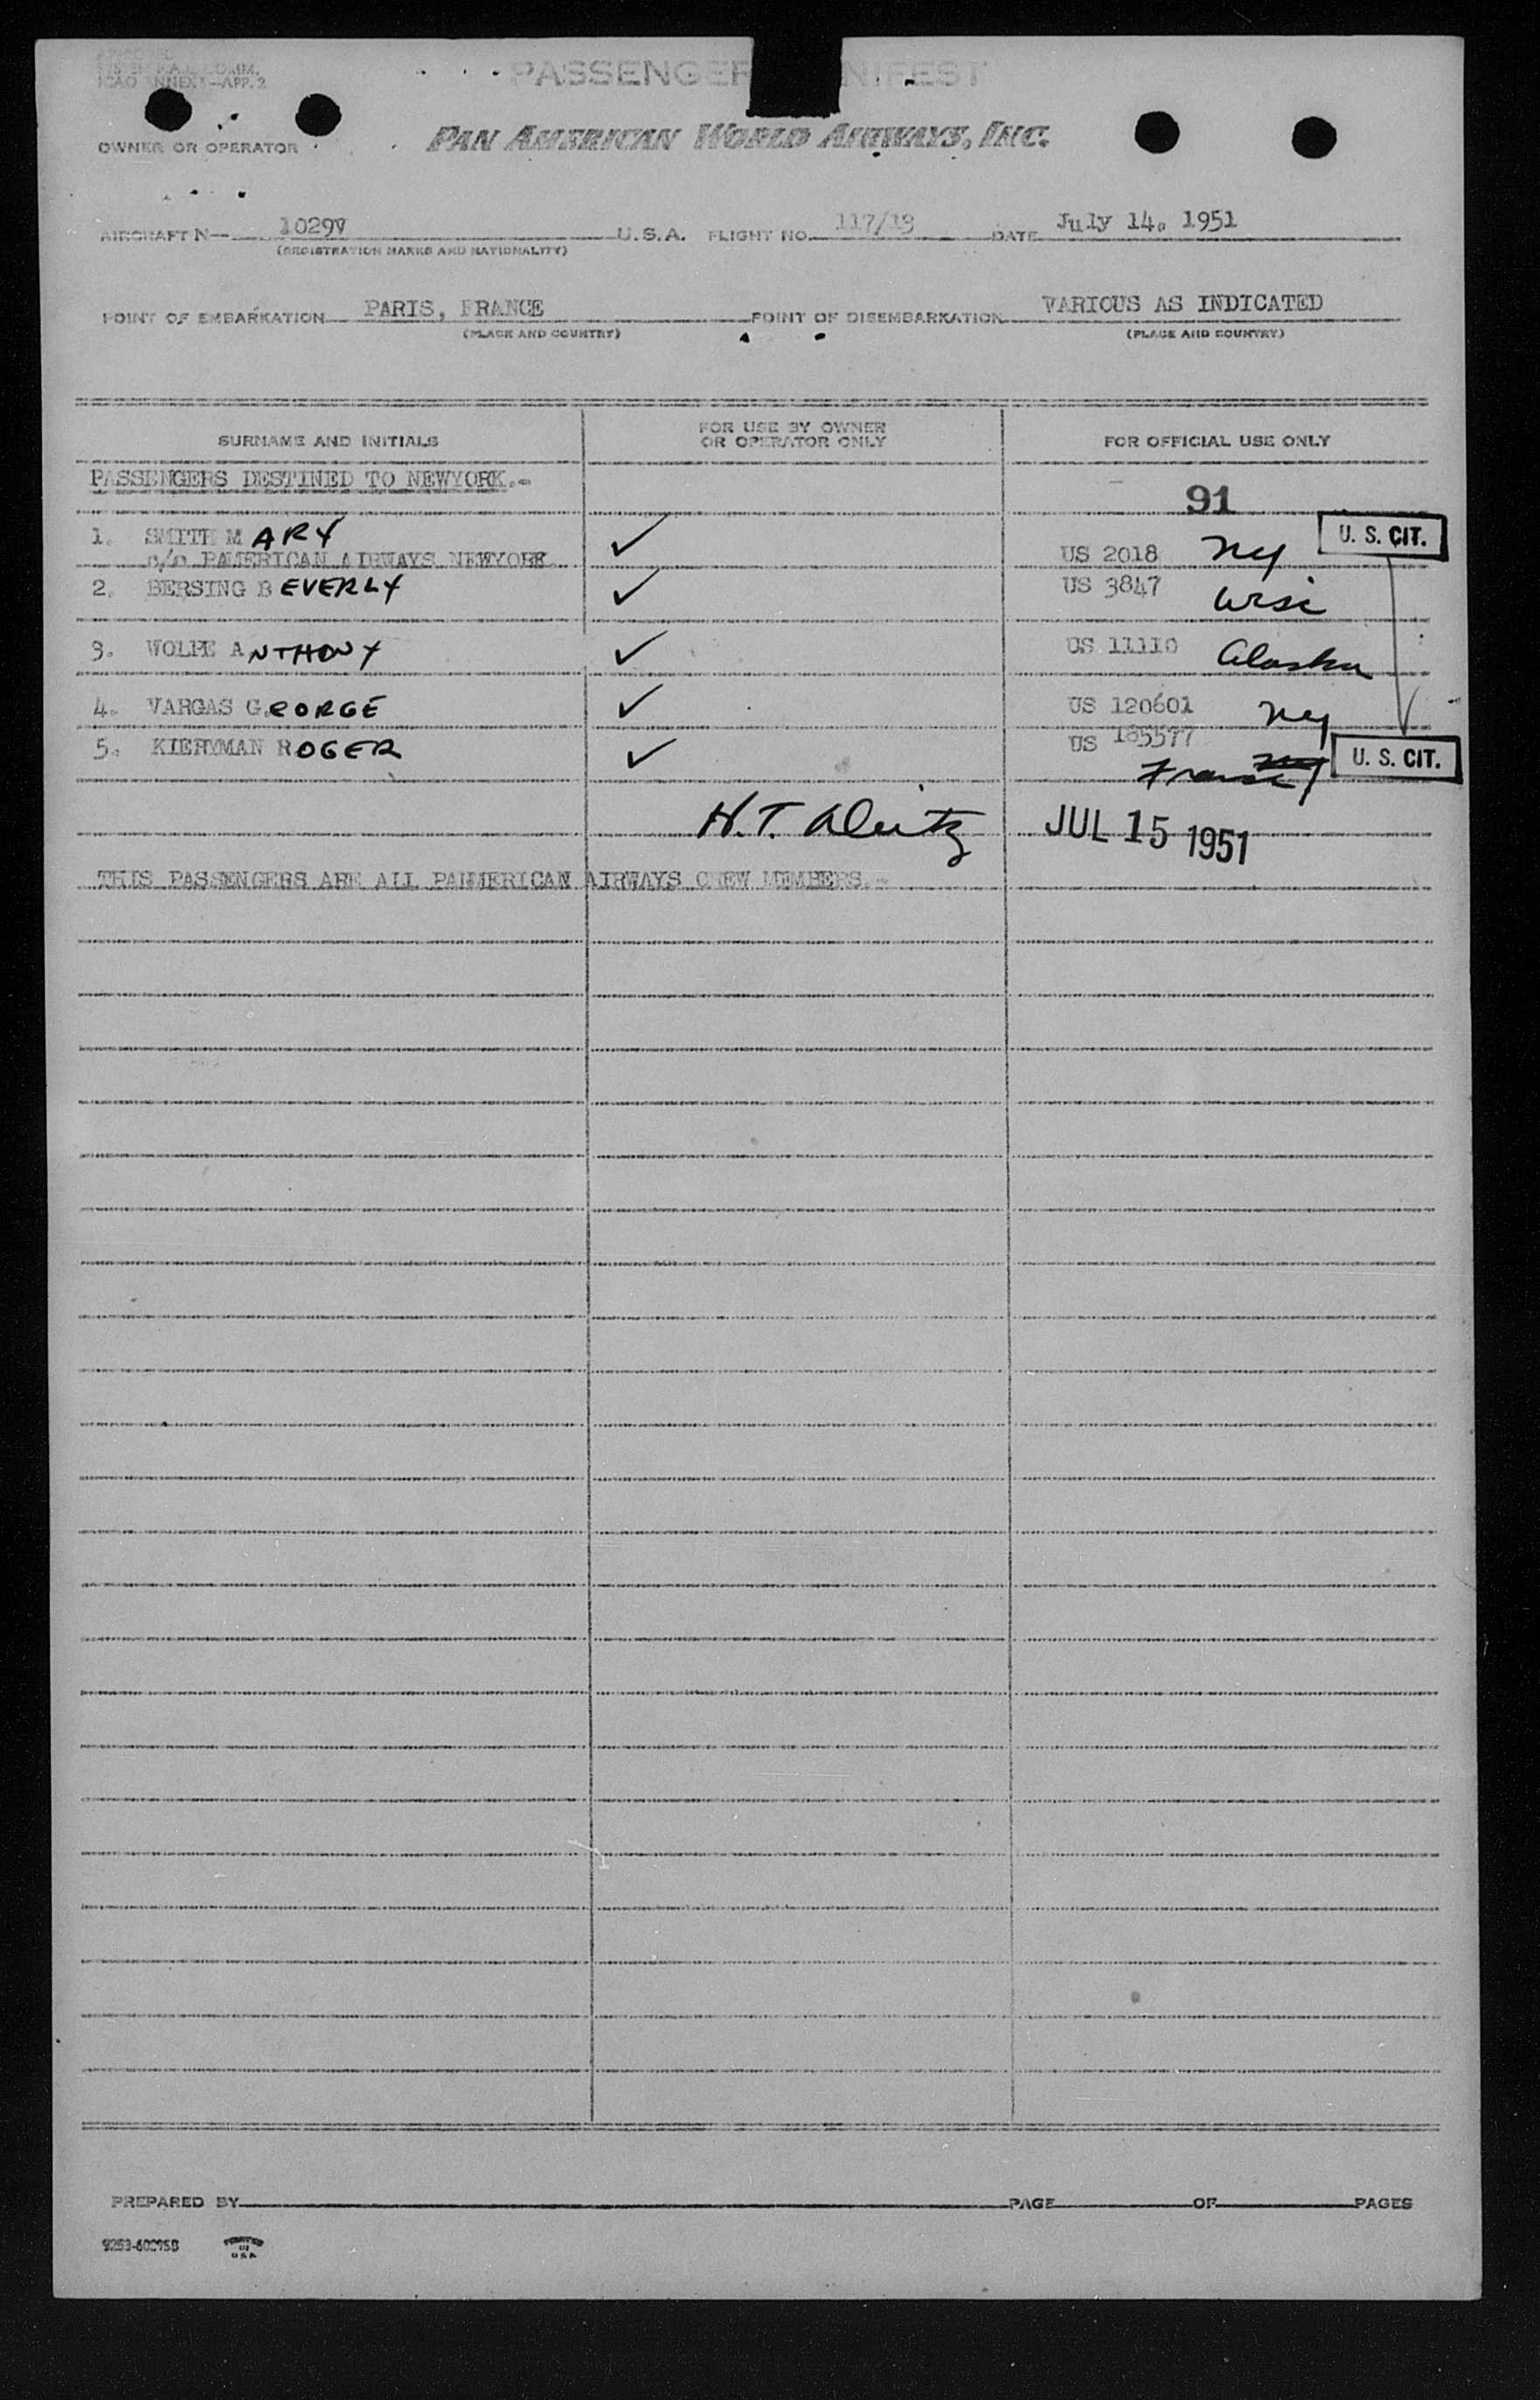 PASSENGER MANIFEST
ICAO ANNEX —APP. 2
OWNER OR OPERATOR
PAN AMERICAN WORLD AIRWAYS, INC.
AIRCRAFT N— 1029V U.S.A. FLIGHT NO. 117/13 DATE July 14. 1951
(REGISTRATION MARKS AND NATIONALITY)
POINT OF EMBARKATION PARIS, FRANCE POINT OF DISEMBARKATION VARIOUS AS INDICATED
(PLACE AND COUNTRY) (PLACE AND COUNTRY)
SURNAME AND INITIALS FOR USE BY OWNER OR OPERATOR ONLY FOR OFFICIAL USE ONLY
PASSENGERS DESTINED TO NEWYORK.-
91
1. SMITH MARY ✓ US 2018 NY U. S. CIT.
c/o PAMERICAN AIRWAYS NEWYORK
2. BERSING BEVERLY ✓ US 3847 Wisc
3. WOLFE ANTHONY ✓ US 11110 Alaska
4. VARGAS G.EORGE ✓ US 120601 NY
5. KIERYMAN ROGER ✓ US 185577 France U. S. CIT.
H.T. JUL 15 1951
THIS PASSENGERS ARE ALL PANMERICAN AIRWAYS CREW MEMBERS.-
PREPARED BY PAGE OF PAGES
PRINTED IN USA